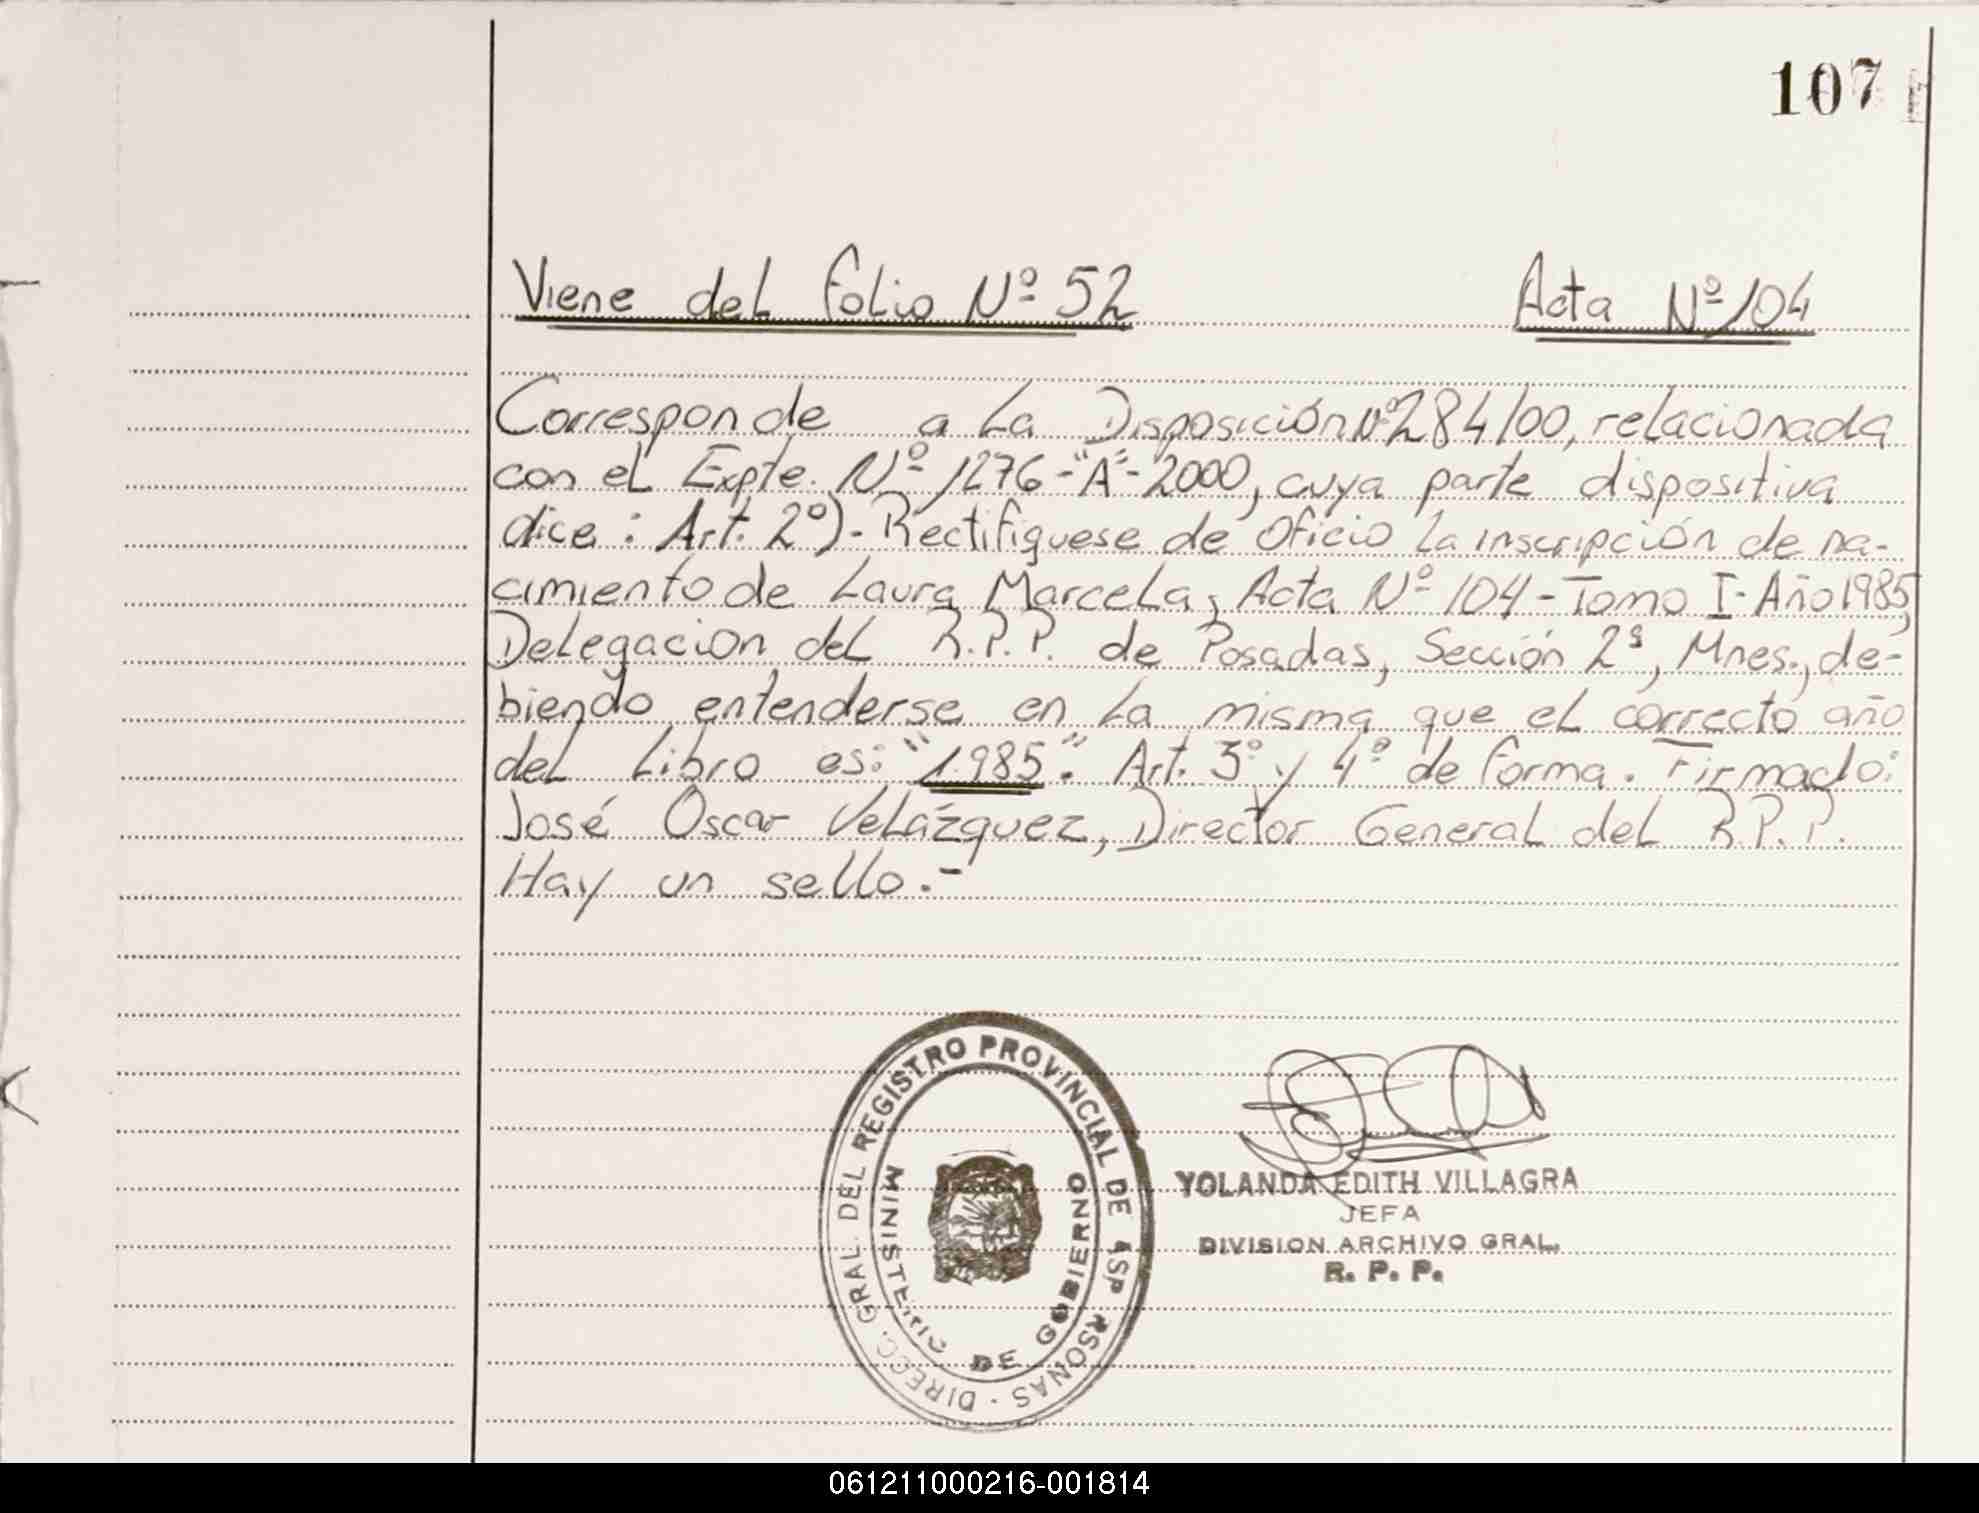 107
Viene del folio Nº 52 Acta Nº 104
Corresponde a La Disposición Nº 284/00, relacionada
con el Expte. Nº 1276-"A"-2000, cuya parte dispositiva
dice: Art. 2º)- Rectifíquese de Oficio La inscripción de na-
cimiento de Laura Marcela, Acta Nº 104-Tomo I-Año 1985,
Delegacion del R.P.P. de Posadas, Sección 2ª, Mnes., de-
biendo entenderse en La misma que el correcto año
del Libro es: "1.985". Art. 3º y 4º de forma. Firmado:
José Oscar Velázquez, Director General del R.P.P.
Hay un sello.-
DIRECC. GRAL. DEL REGISTRO PROVINCIAL DE
MINISTERIO DE GOBIERNO
YOLANDA EDITH VILLAGRA
JEFA
DIVISION ARCHIVO GRAL.
R. P. P.
061211000216-001814